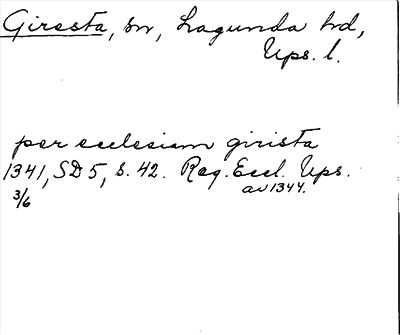 Giresta, sn, Lagunda hd,
Ups. l.
per ecclesiam girista
1341, SD 5, s. 42. Reg. Eccl. Ups.
3/6 av 1344.